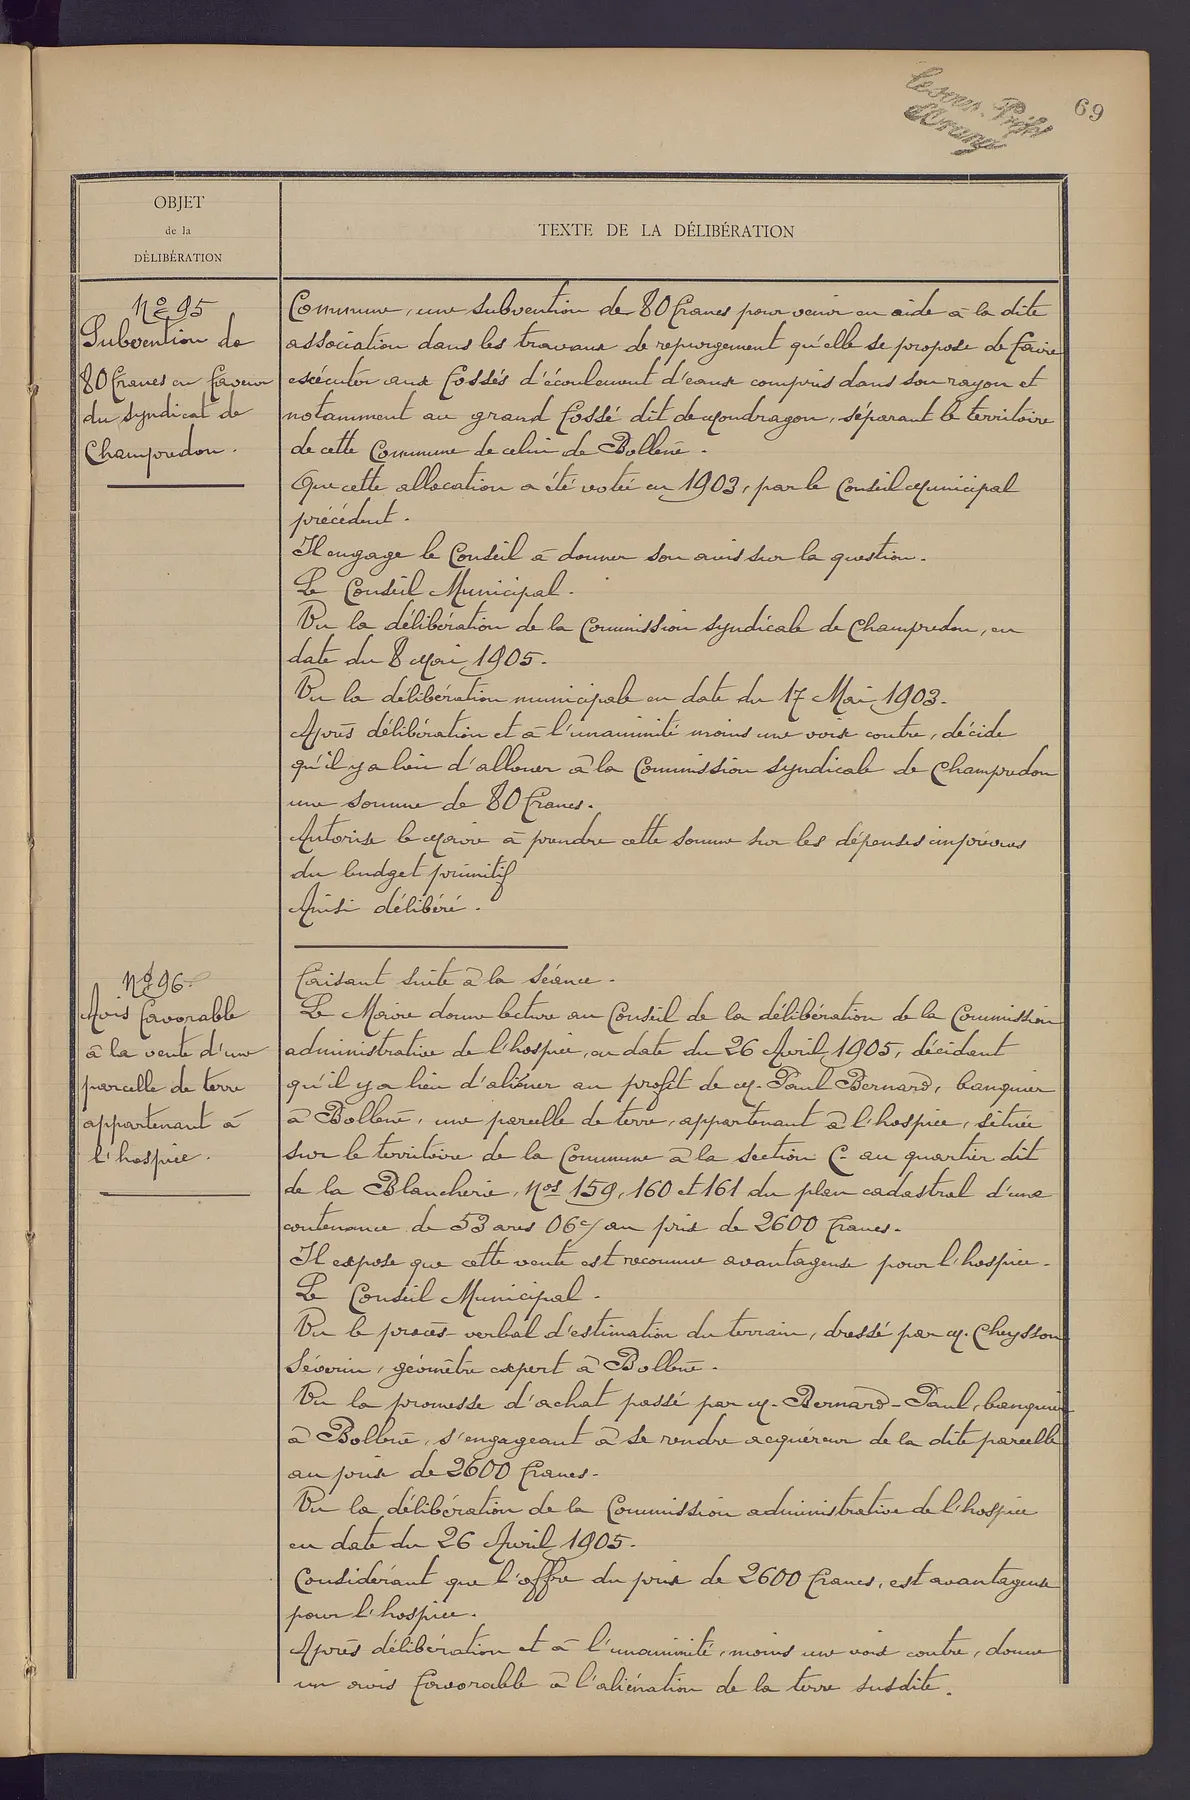 Le sous-Préfet
d'Orange
69
OBJET
de la
DÉLIBÉRATION
TEXTE DE LA DÉLIBÉRATION
Nº 95
Subvention de
80 francs en faveur
du syndicat de
Champredon.
Commune, une subvention de 80 francs pour venir en aide à la dite
association dans les travaux de repurgement qu'elle se propose de faire
exécuter aux fossés d'écoulement d'eaux compris dans son rayon et
notamment au grand fossé dit de Mondragon, séparant le territoire
de cette Commune de celui de Bollène.
Que cette allocation a été votée en 1903, par le Conseil Municipal
précédent.
Il engage le Conseil à donner son avis sur la question.
Le Conseil Municipal.
Vu la délibération de la Commission syndicale de Champredon, en
date du 8 Mai 1905.
Vu la délibération municipale en date du 17 Mai 1903.
Après délibération et à l'unanimité moins une voix contre, décide
qu'il y a lieu d'allouer à la Commission syndicale de Champredon
une somme de 80 francs.
Autorise le Maire à prendre cette somme sur les dépenses imprévues
du budget primitif
Ainsi délibéré.
Nº 96
Avis favorable
à la vente d'une
parcelle de terre
appartenant à
l'hospice.
Faisant suite à la séance.
Le Maire donne lecture au Conseil de la délibération de la Commission
administrative de l'hospice, en date du 26 Avril 1905, décidant
qu'il y a lieu d'aliéner au profit de M. Paul Bernard, banquier
à Bollène, une parcelle de terre, appartenant à l'hospice, située
sur le territoire de la Commune à la section C. au quartier dit
de la Blancherie, Nos 159, 160 et 161 du plan cadastral d'une
contenance de 53 ares 06 c/ au prix de 2600 francs.
Il expose que cette vente est reconnue avantageuse pour l'hospice.
Le Conseil Municipal.
Vu le procès-verbal d'estimation du terrain, dressé par M. Cheysson
Séverin, géomètre expert à Bollène.
Vu la promesse d'achat passé par M. Bernard-Paul, banquier
à Bollène, s'engageant à se rendre acquéreur de la dite parcelle
au prix de 2600 francs.
Vu la délibération de la Commission administrative de l'hospice
en date du 26 Avril 1905.
Considérant que l'offre du prix de 2600 francs, est avantageuse
pour l'hospice.
Après délibération et à l'unanimité, moins une voix contre, donne
un avis favorable à l'aliénation de la terre susdite.